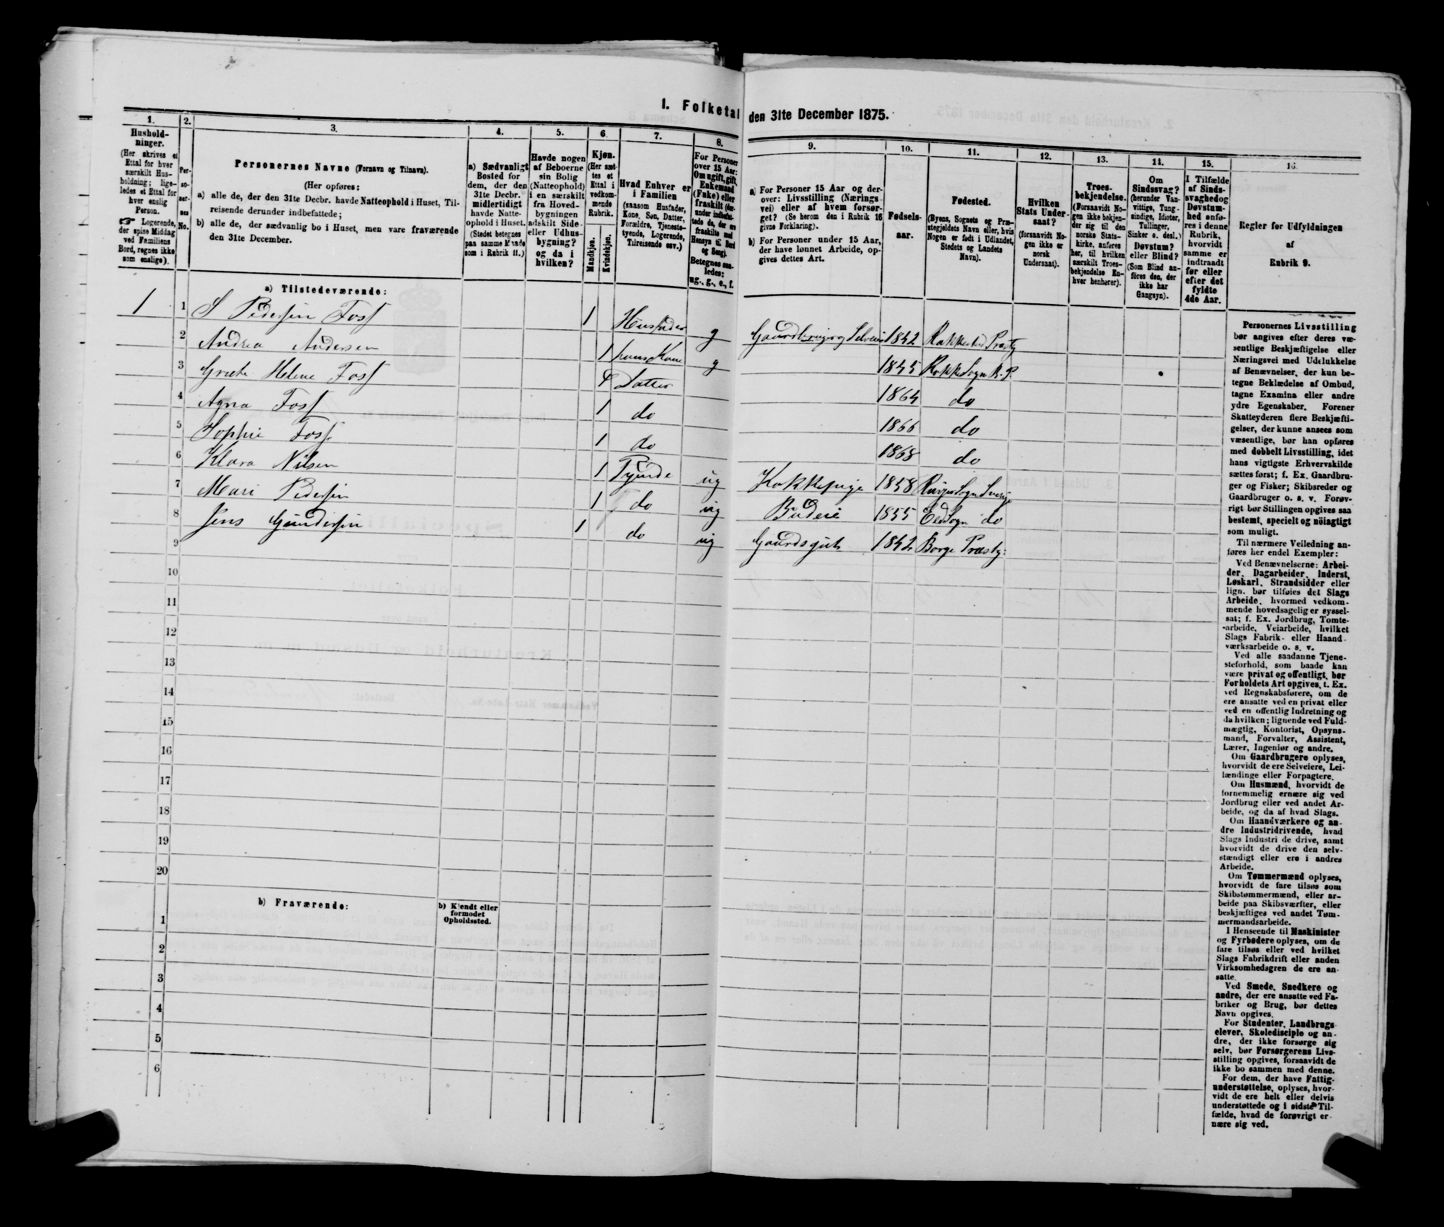 I. Folketal den 31te December 1875.
1.
Hushold-
ninger.
(Her skrives et
Ettal for hver
særskilt Hus-
holdning; lige-
ledes et Ettal for
hver enslig
Person.
☞ Logerende,
der spise Middag
ved Familiens
Bord, regnes ikke
som enslige).
2.
Per-
so-
ner-
nes
No.
3.
Personernes Navne (Fornavn og Tilnavn).
(Her opføres:
a) alle de, der den 31te Decbr. havde Natteophold i Huset, Til-
reisende derunder indbefattede;
b) alle de, der sædvanlig bo i Huset, men vare fraværende
den 31te December.
4.
a) Sædvanligt
Bosted for
dem, der den
31te Decbr.
midlertidigt
havde Natte-
ophold i Huset.
(Stedet betegnes
paa samme Maade
som i Rubrik 11.)
5.
Havde nogen
af Beboerne
sin Bolig
(Natteophold)
i en særskilt
fra Hoved-
bygningen
adskilt Side-
eller Udhus-
bygning?
og da i
hvilken?
6
Kjøn.
(Her sæt-
tes et
Ettal i
vedkom-
mende
Rubrik.
Mandkjøn.
Kvindekjøn.
7.
Hvad Enhver er
i Familien
(saasom Husfader,
Kone, Søn, Datter,
Forældre, Tjeneste-
tyende, Logerende,
Tilreisende osv.)
8.
For Personer
over 15 Aar:
Om ugift, gift,
Enkemand
(Enke) eller
fraskilt
Betegnes saa-
ledes:
ug., g., e., f.
9.
a) For Personer 15 Aar og der-
over: Livsstilling (Nærings-
vei) eller af hvem forsør-
get? (Se herom den i Rubrik 16
givne Forklaring).
b) For Personer under 15 Aar,
der have lønnet Arbeide, op-
gives dettes Art.
10.
Fødsels-
aar.
11.
Fødested.
(Byens, Sognets og Præ-
stegjeldets Navn eller, hvis
Nogen er født i Udlandet,
Stedets og Landets
Navn).
12.
Hvilken
Stats Under-
saat?
(forsaavidt No-
gen ikke er
norsk
Undersaat).
13.
Troes-
bekjendelse.
(Forsaavidt No-
gen ikke bekjen-
der sig til den
norske Stats-
kirke, anføres
her, til hvilken
særskilt Troes-
bekjendelse En-
hver henhører).
14.
Om
Sindssvag?
(herunder Van-
vittige, Tung-
sindige, Idioter,
Tullinger,
Sinker o. desl.)
Døvstum?
eller Blind?
(Som Blind an-
føres den, der
ikke har
Gangsyn).
15.
I Tilfælde
af Sinds-
svaghed og
Døvstum-
hed anfø-
res i denne
Rubrik,
hvorvidt
samme er
indtraadt
før eller
efter det
fyldte
4de Aar.
16.
Regler for Udfyldningen
af
Rubrik 9.
a) Tilstedeværende:
1 1 S Pedersen Foss 1 Husfader g 1842
2 Andrea Andersen 1 hans Kone g 1845
3 Grete Helene Foss Datter 1864 do
4 Agna Foss 1 do 1866 do
5 Sophie Foss 1 do 1868 do
6 Klara Nilsen 1 Tyende ug Kokkepige 1858
7 Mari Pedersen 1 do ug Budeie 1855 do
8 Jens Gundersen 1 do ug Gaardsgut 1852 Borge Præstg:
9
10
11
12
13
14
15
16
17
18
19
20
b) Fraværende:
b) Kjendt eller
formodet
Opholdssted.
1
2
3
4
5
6
Personernes Livsstilling
bør angives efter deres væ-
sentlige Beskjæftigelse eller
Næringsvei med Udelukkelse
af Benævnelser, der kun be-
tegne Beklædelse af Ombud,
tagne Examina eller andre
ydre Egenskaber. Forener
Skatteyderen flere Beskjæfti-
gelser, der kunne ansees som
væsentlige, bør han opføres
med dobbelt Livsstilling, idet
hans vigtigste Erhvervskilde
sættes først; f. Ex. Gaardbru-
ger og Fisker; Skibsreder og
Gaardbruger o. s. v. Forøv-
rigt bør Stillingen opgives saa
bestemt, specielt og nøiagtigt
som muligt.
Til nærmere Veiledning an-
føres her endel Exempler:
Ved Benævnelserne: Arbei-
der, Dagarbeider, Inderst,
Løskarl, Strandsidder eller
lign. bør tilføies det Slags
Arbeide, hvormed vedkom-
mende hovedsagelig er syssel-
sat; f. Ex. Jordbrug, Tomte-
arbeide, Veiarbeide, hvilket
Slags Fabrik- eller Haand-
værksarbeide o. s. v.
Ved alle saadanne Tjene-
steforhold, som baade kan
være privat og offentligt, bør
Forholdets Art opgives, t. Ex.
ved Regnskabsførere, om de
ere ansatte ved en privat eller
ved en offentlig Indretning og
da hvilken; lignende ved Fuld-
mægtig, Kontorist, Opsyns-
mand, Forvalter, Assistent,
Lærer, Ingeniør og andre.
Om Gaardbrugere oplyses,
hvorvidt de ere Selveiere, Lei-
lændinge eller Forpagtere.
Om Husmænd, hvorvidt de
fornemmelig ernære sig ved
Jordbrug eller ved andet Ar-
beide, og da af hvad Slags.
Om Haandværkere og an-
dre Industridrivende, hvad
Slags Industri de drive, samt
hvorvidt de drive den selv-
stændigt eller ere i andres
Arbeide.
Om Tømmermænd oplyses,
hvorvidt de fare tilsøs som
Skibstømmermænd, eller ar-
beide paa Skibsværfter, eller
beskjæftiges ved andet Tøm-
mermandsarbeide.
I Henseende til Maskinister
og Fyrbødere oplyses, om de
fare tilsøs eller ved hvilket
Slags Fabrikdrift eller anden
Virksomhedsgren de ere an-
satte.
Ved Smede, Snedkere og
andre, der ere ansatte ved Fa-
briker og Brug, bør dettes
Navn opgives.
For Studenter, Landbrugs-
elever, Skoledisciple og an-
dre, der ikke forsørge sig
selv, bør Forsørgerens Livs-
stilling opgives, forsaavidt de
ikke bo sammen med denne.
For dem, der have Fattig-
understøttelse, oplyses, hvor-
vidt de ere helt eller delvis
understøttede og i sidste Til-
fælde, hvad de forøvrigt er-
nære sig ved.